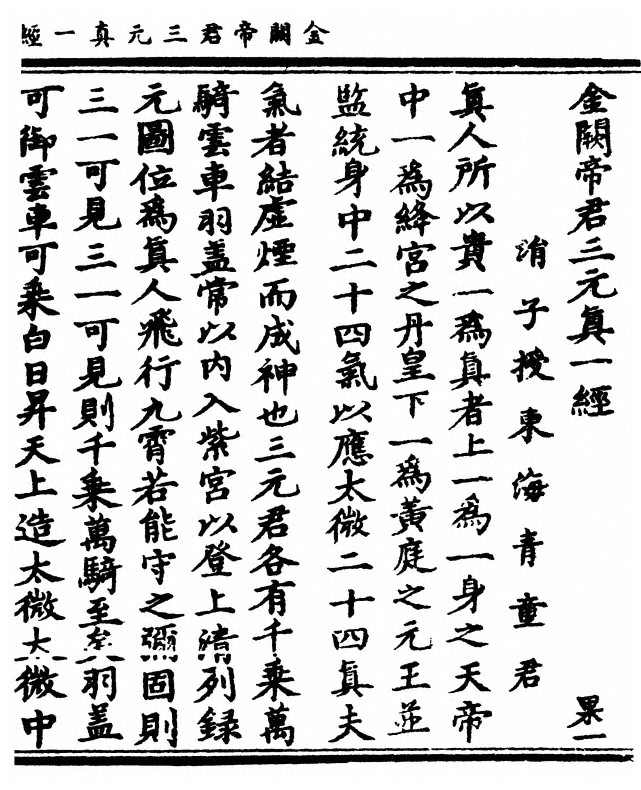 金闕帝君三元真一經
金闕帝君三元真一經 果一
涓子授東海青童君
真人所以貴一爲真者上一爲一身之天帝
中一爲絳宮之丹皇下一爲黃庭之元王並
監統身中二十四氣以應太微二十四真夫
氣者結虛煙而成神也三元君各有千乘萬
騎雲車羽蓋常以内入紫宮以登上清列錄
元圖位爲真人飛行九霄若能守之彌固則
三一可見三一可見則千乘萬騎至矣羽蓋
可御雲車可乘白日昇天上造太微太微中